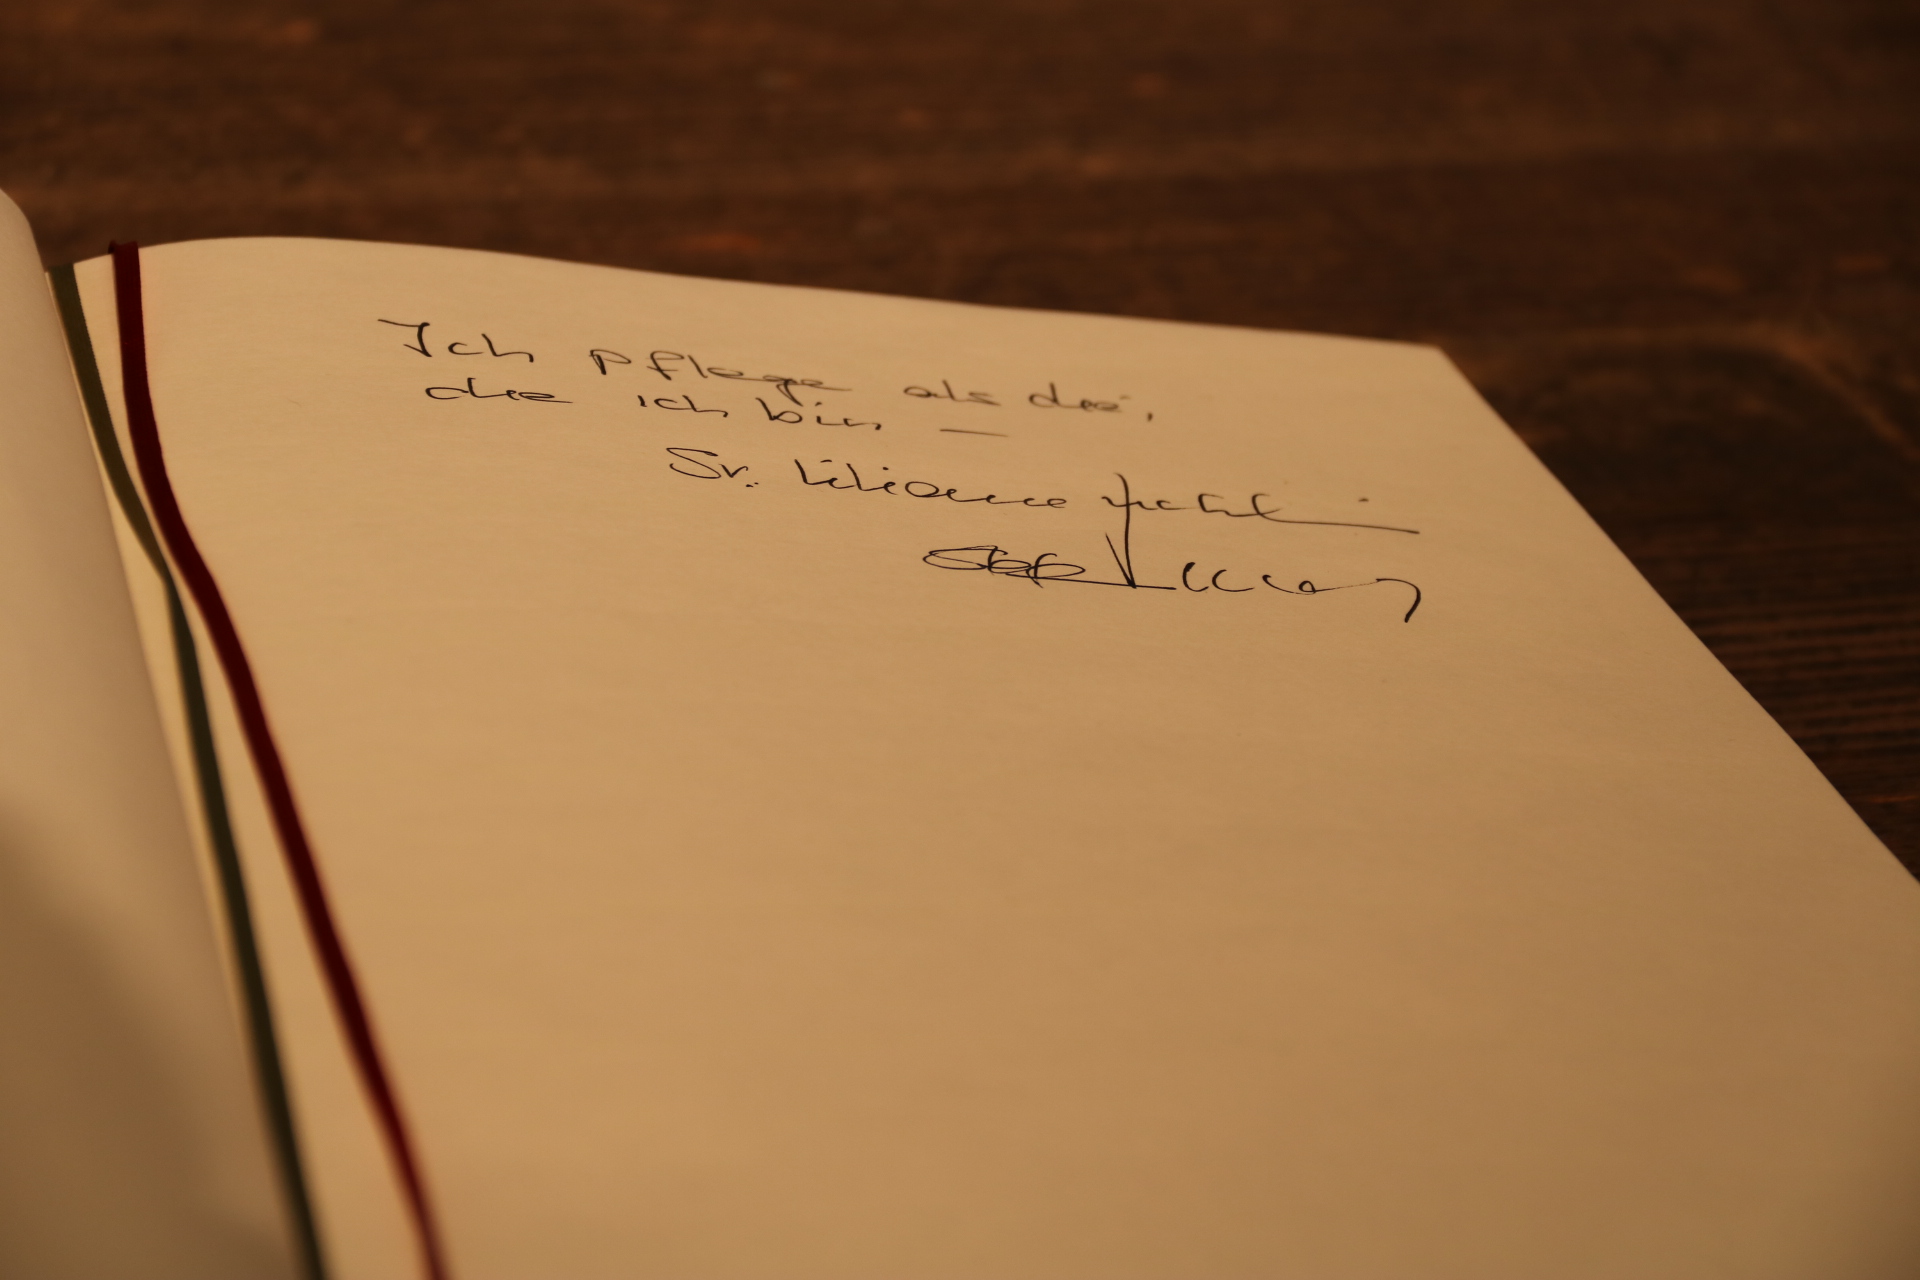 Ich pflege als die,
die ich bin —
Sr. Liliane Juchli